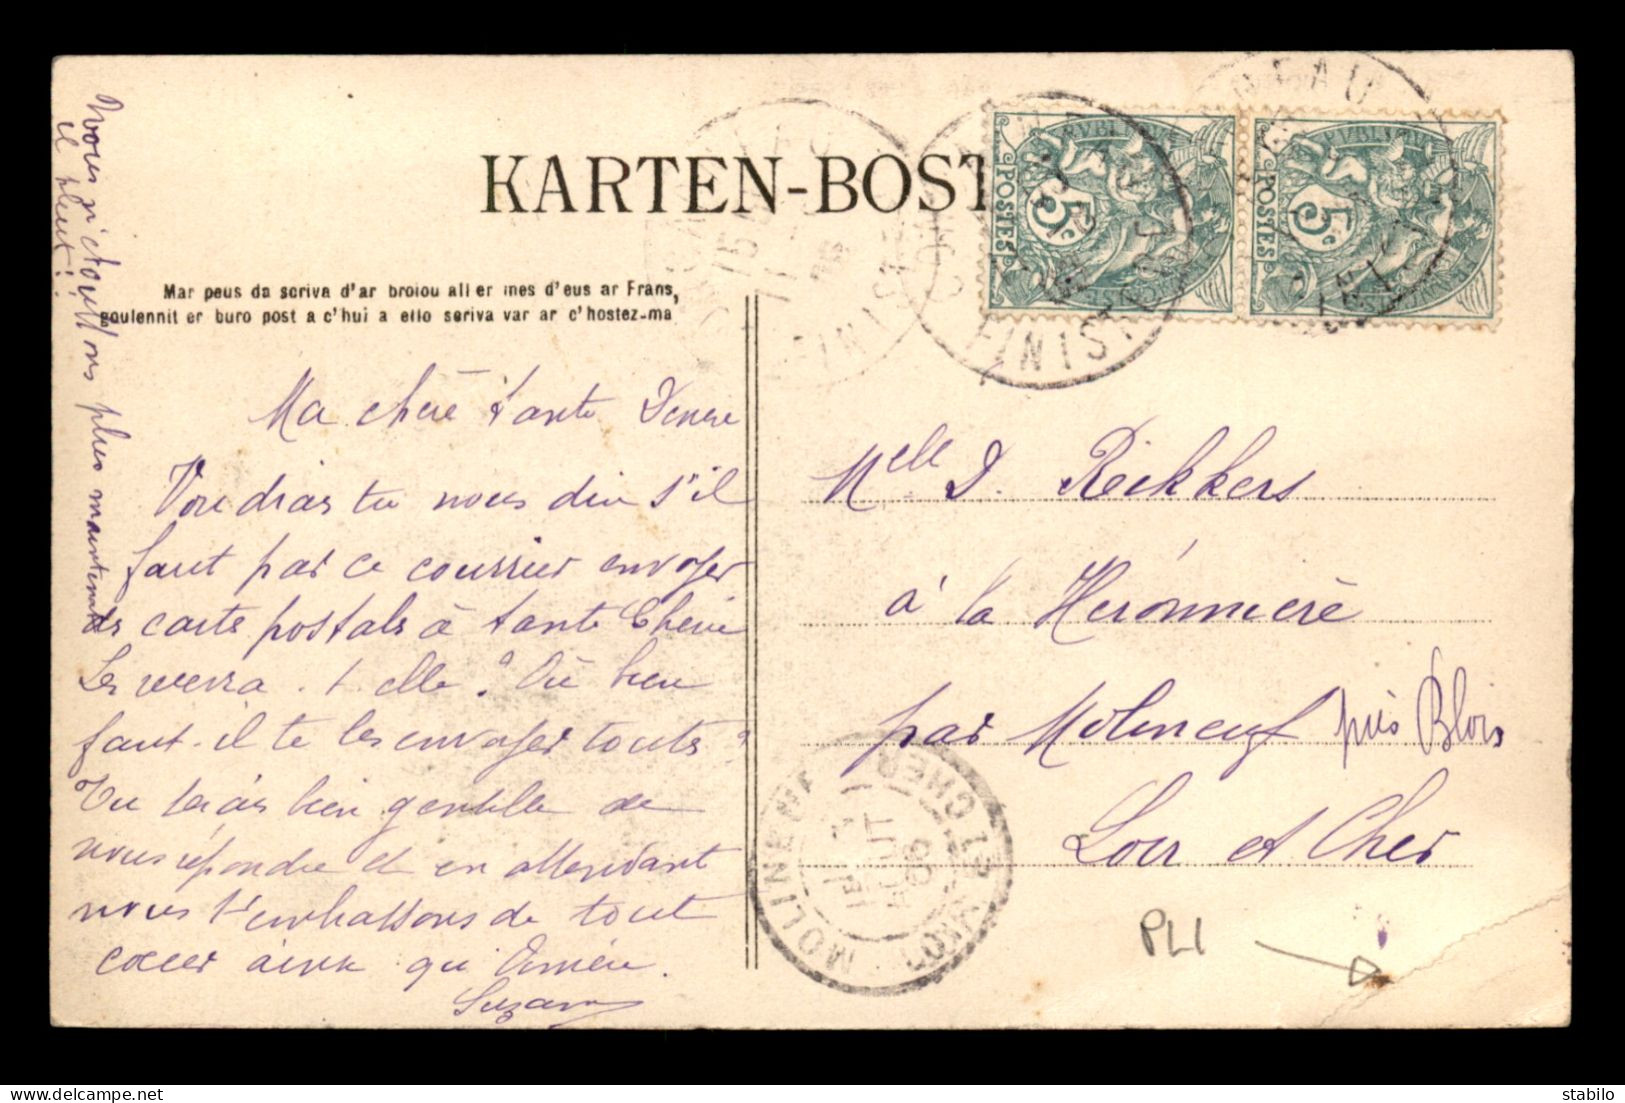 KARTEN-BOST
Mar peus da scriva d'ar broiou all er mes d'eus ar Frans,
goulennit er buro post a c'hui a ello scriva var ar c'hostez-ma
RÉPUBLIQUE
POSTES
5c
POSTES
5c
FINISTÈRE
Ma chère tante Denise
Voudrais tu nous dire s'il
faut par ce courrier envoyer
des carte postals à tante Chérie
Les verra-t-elle? Où bien
faut-il te les envoyer touts?
Tu serais bien gentille de
nous répondre et en attendant
nous t'embrassons de tout
coeur ainsi qu'Aimée.
Suzanne
Nous n'étouffons plus maintenant
il pleut!
Melle D. Reikkers
à la Héronnière
par Molineuf près Blois
Loir et Cher
MOLINEUF LOIR-ET-CHER
AOUT
PLI